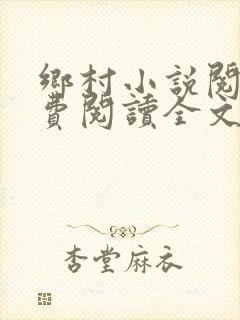 鄉村小説閱
費閱讀全文
杏堂麻衣